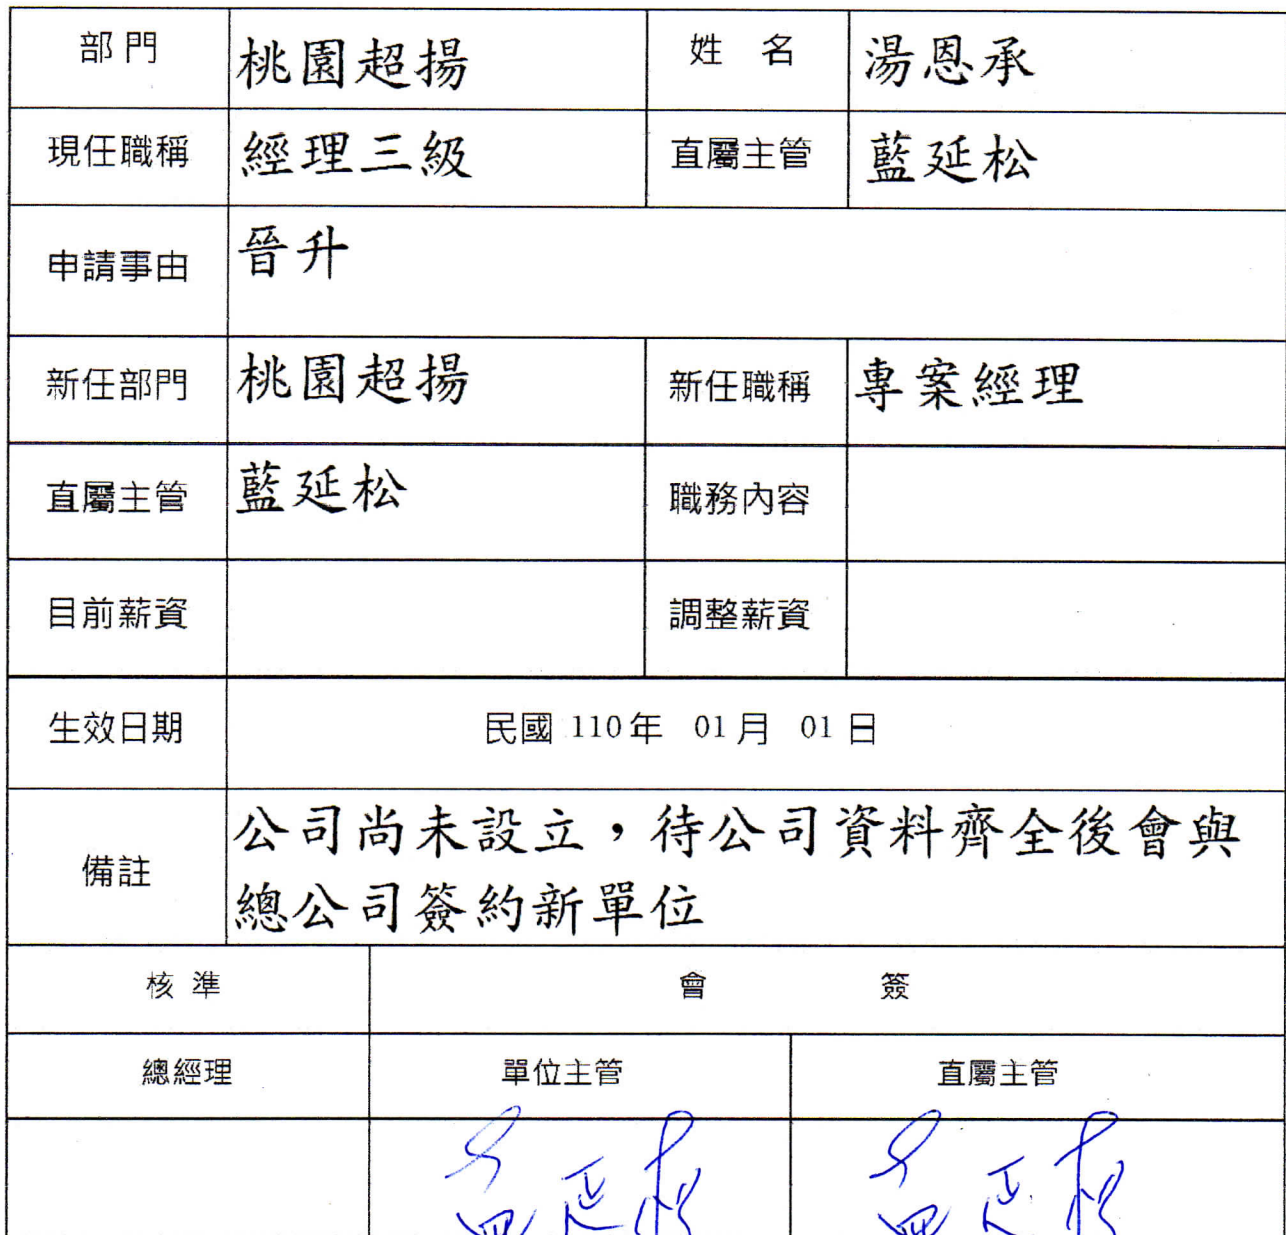 部門 桃園超揚 姓名 湯恩承
現任職稱 經理三級 直屬主管 藍延松
申請事由 晉升
新任部門 桃園超揚 新任職稱 專案經理
直屬主管 藍延松 職務內容
目前薪資 調整薪資
生效日期 民國 110年 01月 01日
備註 公司尚未設立，待公司資料齊全後會與
總公司簽約新單位
核準 會簽
總經理 單位主管 直屬主管
藍延松 藍延松